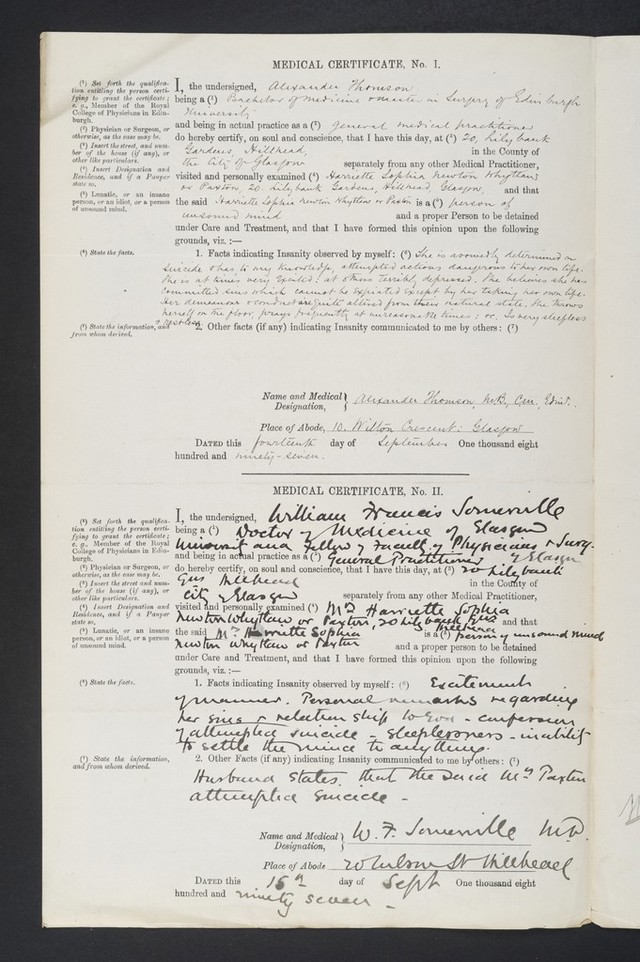 MEDICAL CERTIFICATE, No. I.
(¹) Set forth the qualifica-
tion entitling the person certi-
fying to grant the certificate;
e. g., Member of the Royal
College of Physicians in Edin-
burgh.
(²) Physician or Surgeon, or
otherwise, as the case may be.
(³) Insert the street, and num-
ber of the house (if any), or
other like particulars.
(⁴) Insert Designation and
Residence, and if a Pauper
state so.
(⁵) Lunatic, or an insane
person, or an idiot, or a person
of unsound mind.
I, the undersigned, Alexander Thomson
being a (¹) Bachelor of Medicine & Master in Surgery of Edinburgh
University
and being in actual practice as a (²) general medical practitioner
do hereby certify, on soul and conscience, that I have this day, at (³) 20, Lilybank
Gardens, Hillhead, in the County of
the City of Glasgow separately from any other Medical Practitioner,
visited and personally examined (⁴) Harriette Sophia Newton Whytlaw
or Paxton, 20. Lilybank Gardens, Hillhead, Glasgow, and that
the said Harriette Sophia Newton Whytlaw or Paxton is a (⁵) person of
unsound mind and a proper Person to be detained
under Care and Treatment, and that I have formed this opinion upon the following
grounds, viz. :—
(⁶) State the facts.
1. Facts indicating Insanity observed by myself: (⁶) She is avowedly determined on
suicide & has to my knowledge, attempted actions dangerous to her own life.
She is at times very excited: at others terribly depressed. She believes she has
committed sins which cannot be expiated except by her taking her own life.
Her demeanour & conduct are quite altered from their natural state. She throws
herself on the floor, prays frequently at unreasonable times: &c. Is very sleepless
& restless
(⁷) State the information, and
from whom derived.
2. Other facts (if any) indicating Insanity communicated to me by others: (⁷)
Name and Medical Designation, } Alexander Thomson, M.B., C.M., Edin.
Place of Abode, 10. Wilton Crescent: Glasgow
DATED this fourteenth day of September One thousand eight
hundred and ninety-seven.
MEDICAL CERTIFICATE, No. II.
(¹) Set forth the qualifica-
tion entitling the person certi-
fying to grant the certificate;
e. g., Member of the Royal
College of Physicians in Edin-
burgh.
(²) Physician or Surgeon, or
otherwise, as the case may be.
(³) Insert the street and num-
ber of the house (if any), or
other like particulars.
(⁴) Insert Designation and
Residence, and if a Pauper
state so.
(⁵) Lunatic, or an insane
person, or an idiot, or a person
of unsound mind.
I, the undersigned, William Francis Somerville
being a (¹) Doctor of Medicine of Glasgow
University and Fellow of Faculty of Physicians & Surg.
of Glasgow
and being in actual practice as a (²) General Practitioner
do hereby certify, on soul and conscience, that I have this day, at (³) 20 Lilybank
Gns Hillhead in the County of
City of Glasgow separately from any other Medical Practitioner,
visited and personally examined (⁴) Mrs Harriette Sophia
Newton Whytlaw or Paxton, 20 Lilybank Gns Hillhead and that
the said Mrs Harriette Sophia is a (⁵) person of unsound mind
Newton Whytlaw or Paxton and a proper person to be detained
under Care and Treatment, and that I have formed this opinion upon the following
grounds, viz. :—
(⁶) State the facts.
1. Facts indicating Insanity observed by myself: (⁶) Excitement
of manner. Personal remarks regarding
her sins & relationship to God - confession
of attempted suicide - sleeplessness - inability
to settle the mind to anything.
(⁷) State the information,
and from whom derived.
2. Other Facts (if any) indicating Insanity communicated to me by others: (⁷)
Husband states that the said Mrs Paxton
attempted suicide -
Name and Medical Designation, } W. F. Somerville M.D.
Place of Abode Hillhead
DATED this 15th day of Sept One thousand eight
hundred and ninety seven -